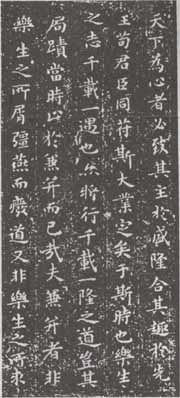 天下為心者必致其主於盛隆合其趣於先
王苟君臣同苻斯大業定矣于斯時也樂生
之志千載一遇也亦將行千載一隆之道豈其
局蹟當時止於兼并而已哉夫兼并者非
樂生之所屑彊燕而癈道又非樂生之所求